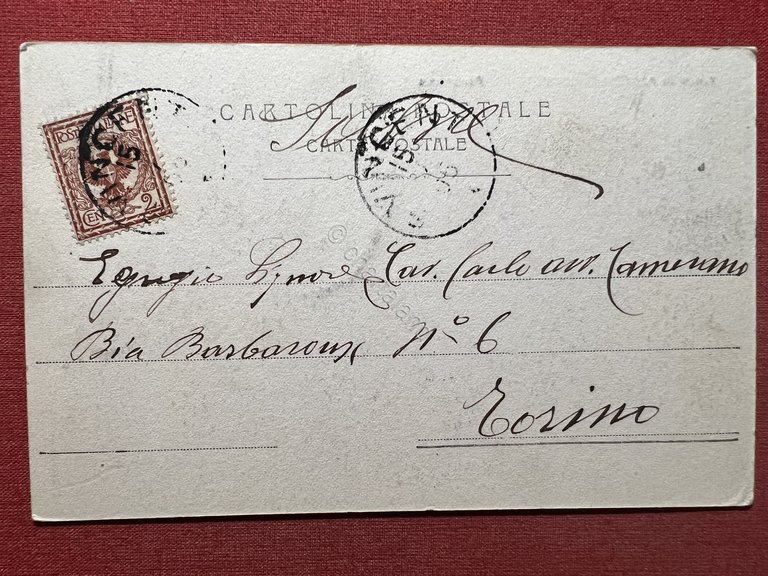 CARTOLINA POSTALE
CARTE POSTALE
POSTE ITALIANE
CENT 2
Egregio Signore Cav. Carlo avv. Camerano
Via Barbaroux N° 6
Torino